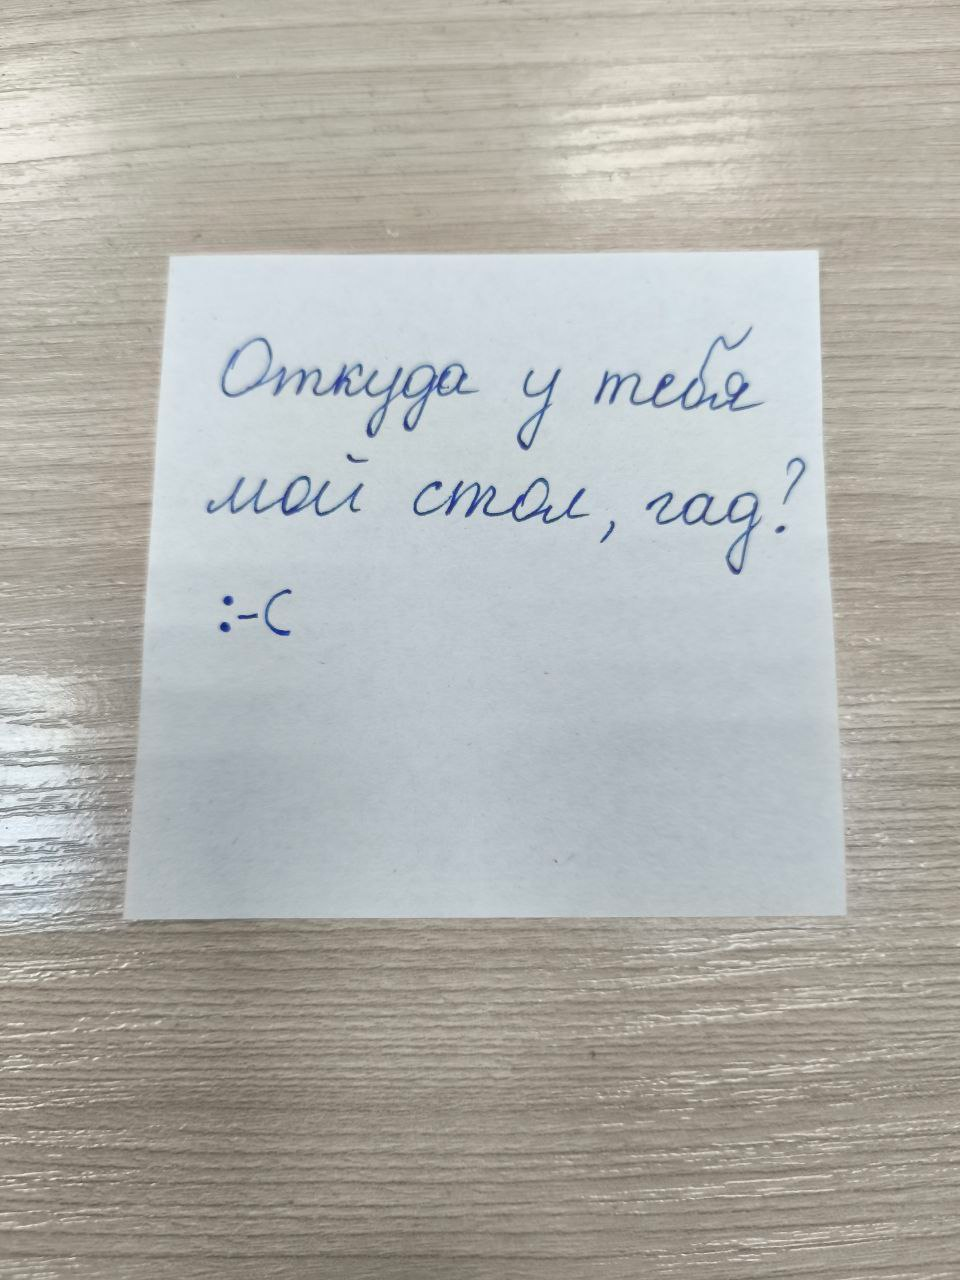 Откуда у тебя
мой стол, гад?
:-(